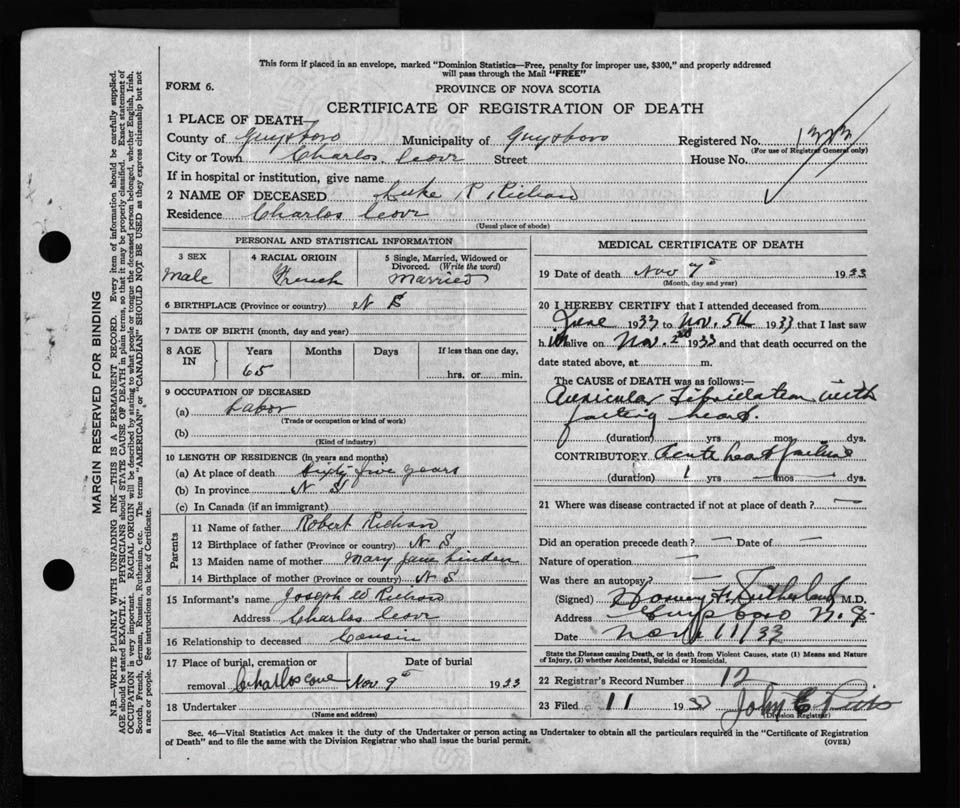 This form if placed in an envelope, marked "Dominion Statistics—Free, penalty for improper use, $300," and properly addressed
will pass through the Mail "FREE"
FORM 6.
PROVINCE OF NOVA SCOTIA
CERTIFICATE OF REGISTRATION OF DEATH
1 PLACE OF DEATH—
County of Guysboro Municipality of Guysboro Registered No.
(For use of Registrar General only)
City or Town Charlos Cove Street House No.
If in hospital or institution, give name
2 NAME OF DECEASED Luke R Richan
Residence Charlos Cove
(Usual place of abode)
PERSONAL AND STATISTICAL INFORMATION
3 SEX 4 RACIAL ORIGIN 5 Single, Married, Widowed or
Divorced. (Write the word)
Male French Married
6 BIRTHPLACE (Province or country) N S
7 DATE OF BIRTH (month, day and year)
8 AGE IN Years Months Days If less than one day,
65 hrs. or min.
9 OCCUPATION OF DECEASED
(a) Labor
(Trade or occupation or kind of work)
(b)
(Kind of industry)
10 LENGTH OF RESIDENCE (in years and months)
(a) At place of death Sixty five years
(b) In province N S
(c) In Canada (if an immigrant)
Parents
11 Name of father Robert Richan
12 Birthplace of father (Province or country) N S
13 Maiden name of mother Mary Jane Linden
14 Birthplace of mother (Province or country) N S
15 Informant's name Joseph W Richan
Address Charlos Cove
16 Relationship to deceased Cousin
17 Place of burial, cremation or Date of burial
removal Charlos Cove Nov. 9 1933
18 Undertaker
(Name and address)
MEDICAL CERTIFICATE OF DEATH
19 Date of death Nov 7 1933
(Month, day and year)
20 I HEREBY CERTIFY that I attended deceased from
June 1933 to Nov. 5th 1933 that I last saw
h im alive on Nov. 2nd 1933 and that death occurred on the
date stated above, at m.
The CAUSE OF DEATH was as follows:—
Auricular Fibrillation with
failing heart.
(duration) yrs mos. dys.
CONTRIBUTORY Acute heart failure
(duration) 1 yrs — mos — dys.
21 Where was disease contracted if not at place of death? —
Did an operation precede death? — Date of —
Nature of operation —
Was there an autopsy? —
(Signed) Harvey Sutherland M.D.
Address Guysboro N.S.
Date Nov 11/33
State the Disease causing Death, or in death from Violent Causes, state (1) Means and Nature
of Injury, (2) whether Accidental, Suicidal or Homicidal.
22 Registrar's Record Number 12
23 Filed 11 1933 John
(Division Registrar)
Sec. 46—Vital Statistics Act makes it the duty of the Undertaker or person acting as Undertaker to obtain all the particulars required in the "Certificate of Registration
of Death" and to file the same with the Division Registrar who shall issue the burial permit.
(OVER)
MARGIN RESERVED FOR BINDING
N.B.—WRITE PLAINLY WITH UNFADING INK—THIS IS A PERMANENT RECORD. Every item of information should be carefully supplied.
AGE should be stated EXACTLY. PHYSICIANS should STATE CAUSE OF DEATH in plain terms, so that it may be properly classified. Exact statement of
OCCUPATION is very important. RACIAL ORIGIN will be described by stating to what people or tongue the deceased person belonged, whether English, Irish,
Scotch, French, German, Russian, Ruthenian, etc. The terms "AMERICAN" or "CANADIAN" SHOULD NOT BE USED as they express citizenship but not
a race or people. See instructions on back of Certificate.